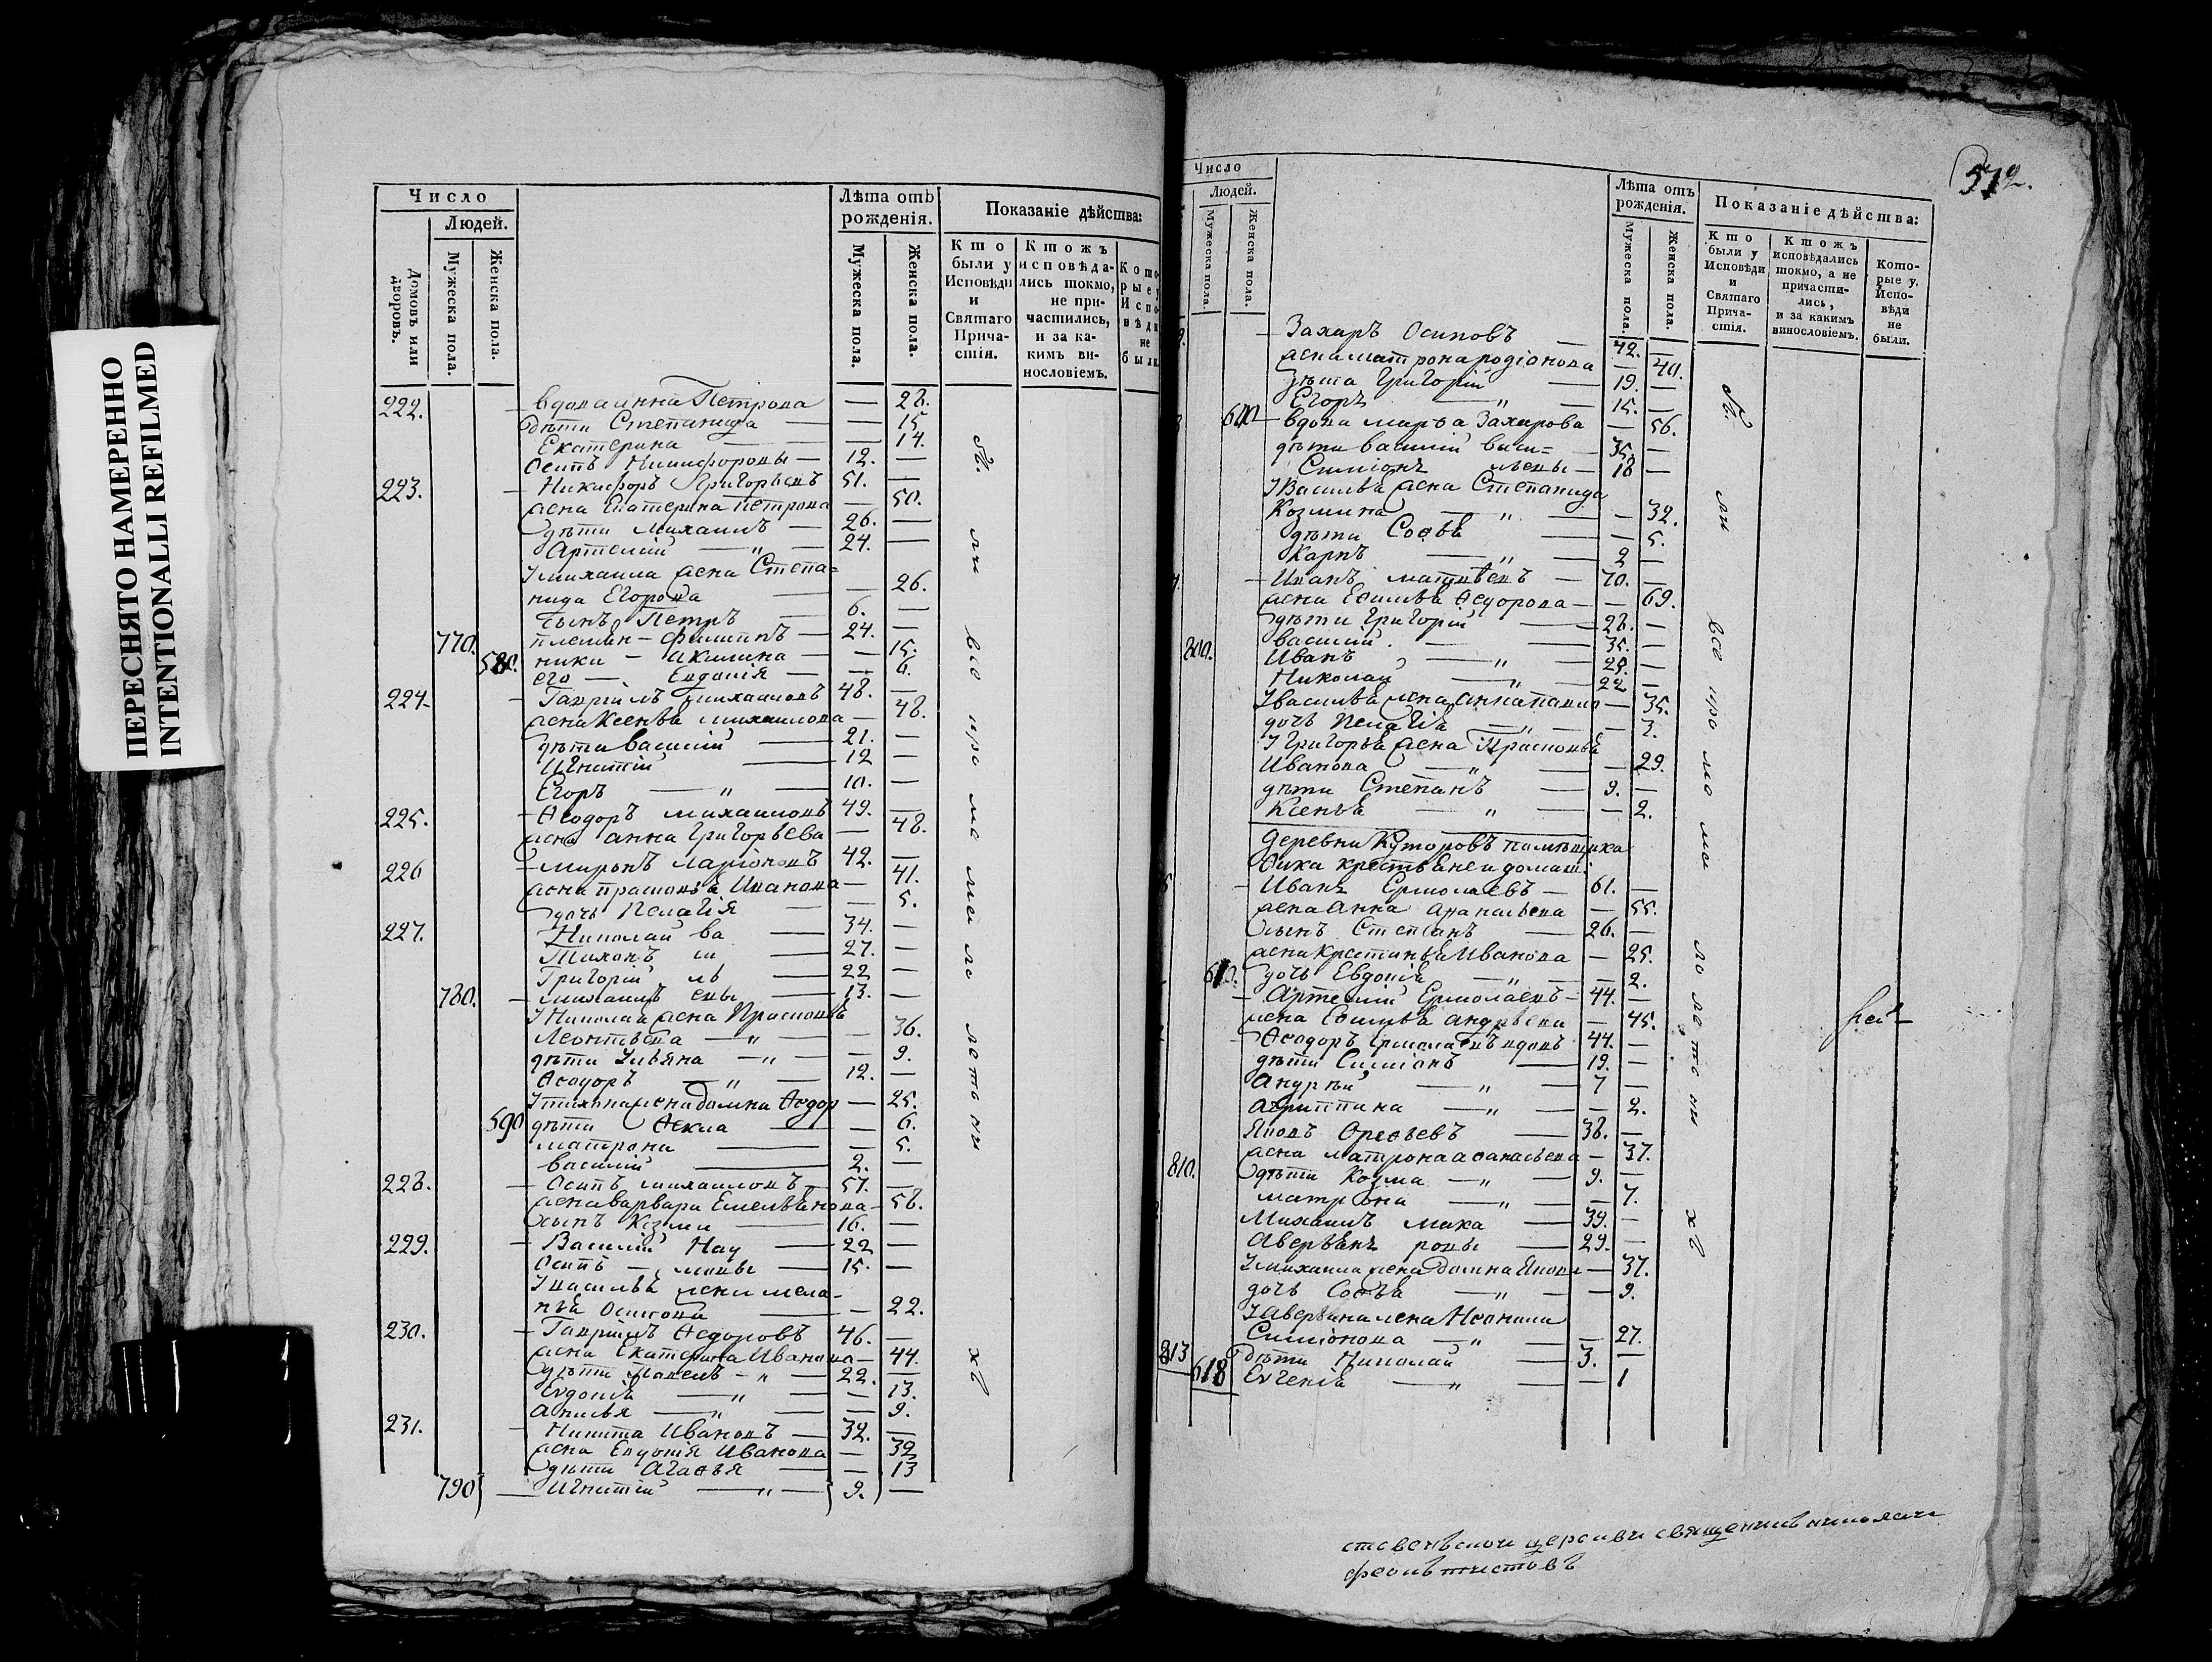 ПЕРЕСНЯТО НАМЕРЕННО
INTENTIONALLI REFILMED
Число
Людей.
Домовъ или дворовъ.
Мужеска пола.
Женска пола.
Лѣта отъ рожденія.
Мужеска пола.
Женска пола.
Показаніе дѣйства:
Кто были у Исповѣди и Святаго Причастія.
Ктожъ исповѣдались токмо, не причастились, и за какимъ винословіемъ.
Которые у Исповѣди не были
222. вдова Анна Петрова — 28.
дѣти Степанида — 15
Екатерина — 14.
Осипъ Никифоровы — 12. —
223. Никифоръ Григорьевъ 51. —
жена Екатерина Петрова — 50.
дѣти Михаилъ — 26. —
Артемій — „ — 24. —
У михаила жена Степа=
нида Егорова — 26.
сынъ Петръ 6. —
770. племян— Филиппъ — 24. —
580. ники — Акилина — 15.
его — Евдокія — 6.
224. Гавріилъ михаиловъ 48. —
жена Ксенья михаилова — 48.
дѣти Василій — 21. —
Игнатій — 12 —
Егоръ — „ — 10. —
225. Ѳеодоръ михаиловъ 49. —
жена анна Григорьева — 48.
226 миронъ ларіоновъ 42. —
жена прасковья Иванова — 41.
дочь Пелагія — 5.
227. Николай ва — 34. —
Тихонъ си — 27. —
Григорій ль — 22 —
780. михаилъ евы — 13. —
У Николая жена Прасковья
Леонтьева — „ — 36.
дѣти Ульяна — „ — 9.
Ѳеодоръ — „ — 12. —
У тихона жена домна Ѳедор — 25.
590 дѣти Ѳекла — 6.
матрона — 5.
василій — 2. —
228. Осипъ михаиловъ — 57. —
жена варвара Емельянова — 58.
сынъ Козма — 16. —
229. Василій Нау — 22 —
Осипъ — мовы — 15. —
У василья жена мела-
нья Осипова — 22.
230. Гавріилъ Ѳедоровъ 46. —
жена Екатерина Иванова — 44.
дѣти Павелъ — „ — 22. —
Евдокія — „ — 13.
Анисья — „ — 9.
231. Никита Ивановъ — 32. —
жена Евдокія Иванова — 32
дѣти Агаѳья — 13
790 Игнатій — „ — 9. —
все
512.
Число
Людей.
Мужеска пола.
Женска пола.
Лѣта отъ рожденія.
Мужеска пола.
Женска пола.
Показаніе дѣйства:
Кто были у Исповѣди и Святаго Причастія.
Ктожъ исповѣдались токмо, а не причастились, и за какимъ винословіемъ.
Которые у Исповѣди не были.
Захаръ Осиповъ — 42. —
жена матрона родіонова — 40.
дѣти Григорій — 19. —
Егоръ — „ — 15. —
600 вдова марѳа Захарова — 56.
дѣти василій васи= — 35. —
Симіонъ льевы — 18 —
У Василья жена Степанида
Козмина — „ — 32.
дѣти Софья — 5.
Карпъ — „ — 2 —
Иванъ матвѣевъ — 70. —
жена Ефимья Ѳедорова — 69.
дѣти Григорій — 28. —
800. василій — 35. —
Иванъ — „ — 25. —
Николай — „ — 22 —
У василья жена Анна — 35.
дочь Пелагія — „ — 2.
У Григорья жена Прасковья
Иванова — „ — 29.
дѣти Степанъ — 9. —
Ксенья — „ — 2.
деревни Куторовъ помѣщика
крестьяне и домаш:
Иванъ Ермолаевъ — 61. —
жена Анна Афанасьева — 55.
сынъ Степанъ — 26. —
жена Крестинья Иванова — 25.
610. дочь Евдокія — „ — 2.
Артемій Ермолаевъ — 44. —
жена Ефимья андрѣева — 45.
Ѳеодоръ Ермолаевъ вдовъ 44. —
дѣти Симіонъ — 19. —
Андрѣй — „ — 7 —
Агриппина — „ — 2.
Яковъ Ореѳьевъ — 38. —
810. жена матрона аѳанасьева — 37.
дѣти Козма — „ — 9. —
матрона — „ — 7.
Михаилъ мака — 39. —
Аверьянъ ровы — 29. —
У михаила жена домна Яковл — 37.
дочь Софья — „ — 9.
У Аверьяна жена Неонила
Симіонова — „ — 27.
813 дѣти Николай — 3. —
618 Евгенія — „ — 1
все